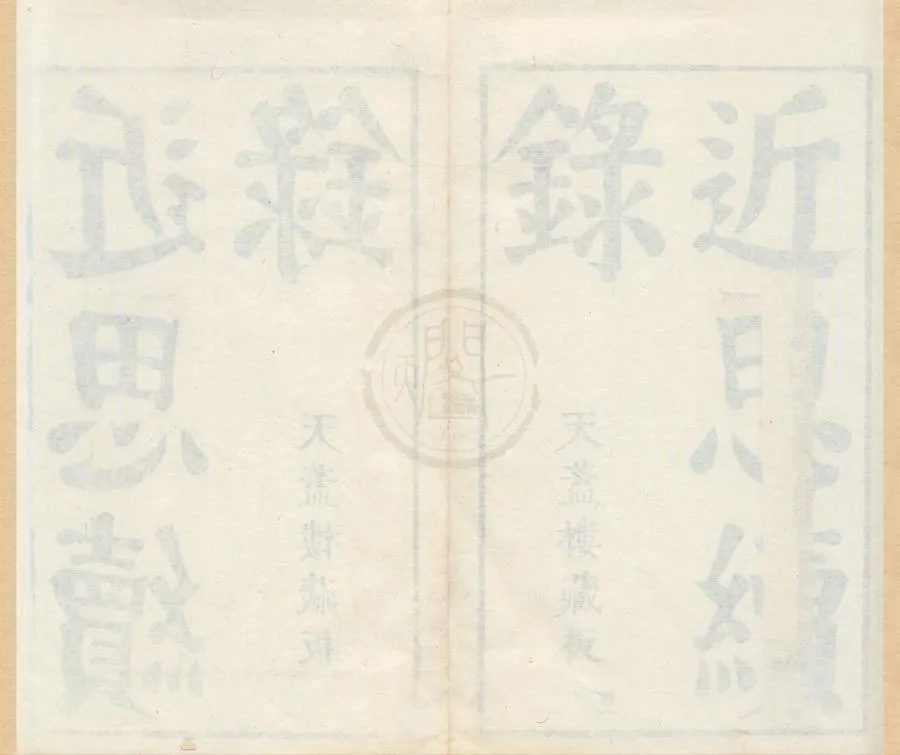 近思續
錄
天蓋樓藏板
近思續
錄
天蓋樓藏板